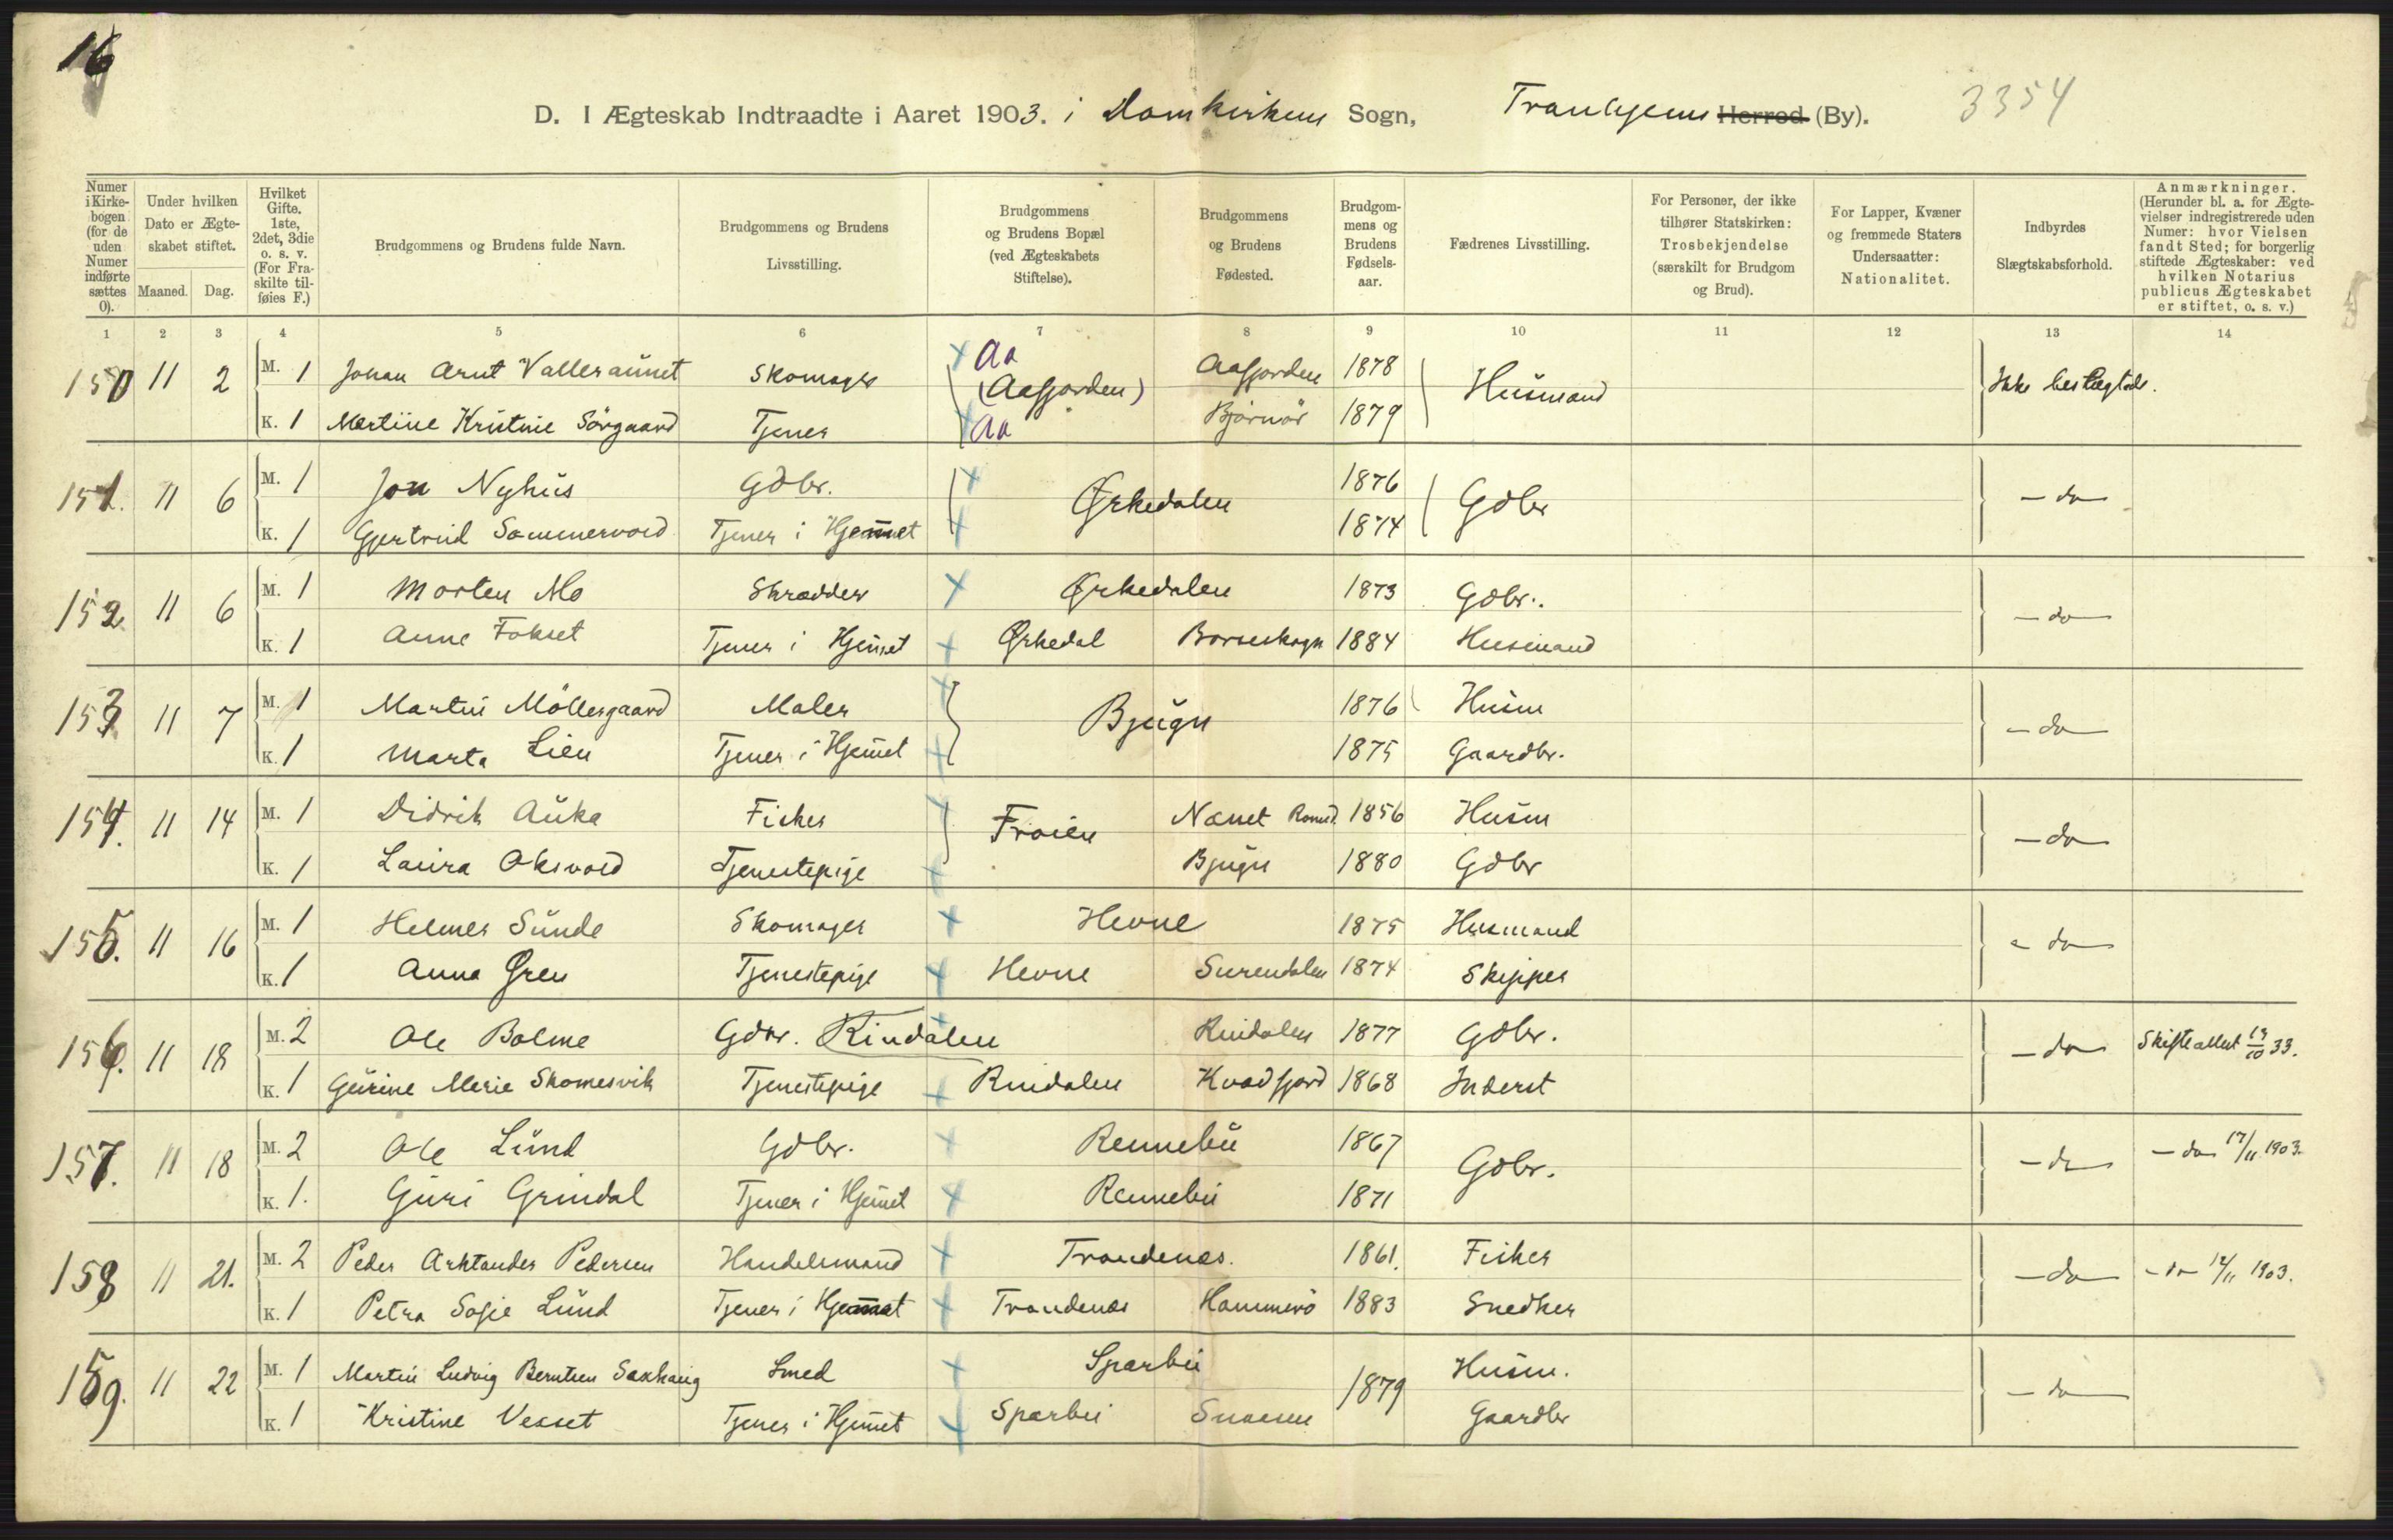 16
D. I Ægteskab Indtraadte i Aaret 1903. i Domkirkens Sogn, Trondhjems Herred (By). 3354
Numer i Kirkebogen (for de uden Numer indførte sættes 0).
Under hvilken Dato er Ægteskabet stiftet.
Maaned. Dag.
Hvilket Gifte. 1ste, 2det, 3die o. s. v. (For Fraskilte tilføies F.)
Brudgommens og Brudens fulde Navn.
Brudgommens og Brudens Livsstilling.
Brudgommens og Brudens Bopæl (ved Ægteskabets Stiftelse).
Brudgommens og Brudens Fødested.
Brudgommens og Brudens Fødselsaar.
Fædrenes Livsstilling.
For Personer, der ikke tilhører Statskirken: Trosbekjendelse (særskilt for Brudgom og Brud).
For Lapper, Kvæner og fremmede Staters Undersaatter: Nationalitet.
Indbyrdes Slægtskabsforhold.
Anmærkninger. (Herunder bl. a. for Ægtevielser indregistrerede uden Numer: hvor Vielsen fandt Sted; for borgerlig stiftede Ægteskaber: ved hvilken Notarius publicus Ægteskabet er stiftet, o. s. v.)
1 2 3 4 5 6 7 8 9 10 11 12 13 14
150 11 2 M. 1 Johan Arnt Valleraunet Skomager Aa (Aafjorden) Aafjorden 1878 Husmand Ikke beslægtede.
K. 1 Martine Kristine Sörgaard Tjener Aa Björnör 1879
151. 11 6 M. 1 Jon Nyhus Gdbr. Ørkedalen 1876 Gdbr - do
K. 1 Gjertrud Sommervold Tjener i Hjemmet 1874
152 11 6 M. 1 Morten Mo Skrædder Ørkedalen 1873 Gdbr. - do
K. 1 Anne Fokset Tjener i Hjemmet Ørkedal Børseskogn 1884 Husmand
153 11 7 M. 1 Martin Möllergaard Maler Bjugn 1876 Husm - do
K. 1 Marta Lien Tjener i Hjemmet 1875 Gaardbr.
154. 11 14 M. 1 Didrik Auka Fisker Froien Næset Romsd. 1856 Husm - do
K. 1 Laura Oksvold Tjenestepige Bjugn 1880 Gdbr
155. 11 16 M. 1 Helmer Sunde Skomager Hevne 1875 Husmand - do
K. 1 Anna Øren Tjenestepige Hevne Surendalen 1874 Skipper
156. 11 18 M. 2 Ole Bolme Gdbr. Rindalen Rindalen 1877 Gdbr. - do Skifteattest 13/10 33.
K. 1 Gurine Merie Skomesvik Tjenestepige Rindalen Kvadfjord 1868 Inderst
157. 11 18 M. 2 Ole Lund Gdbr. Rennebu 1867 Gdbr. - do - do 17/11 1903.
K. 1. Guri Grindal Tjener i Hjemmet Rennebu 1871
158 11 21. M. 2 Peder Arktander Pedersen Handelsmand Trondenæs. 1861. Fisker - do - do 12/11 1903.
K. 1 Petra Sofie Lund Tjener i Hjemmet Trondenæs Hammerö 1883 Snedker
159. 11 22 M. 1 Martin Ludvig Berntsen Saxhaug Smed Sparbu 1879 Husm. - do
K. 1 Kristine Vesset Tjener i Hjemmet Sparbu Snaasen Gaardbr